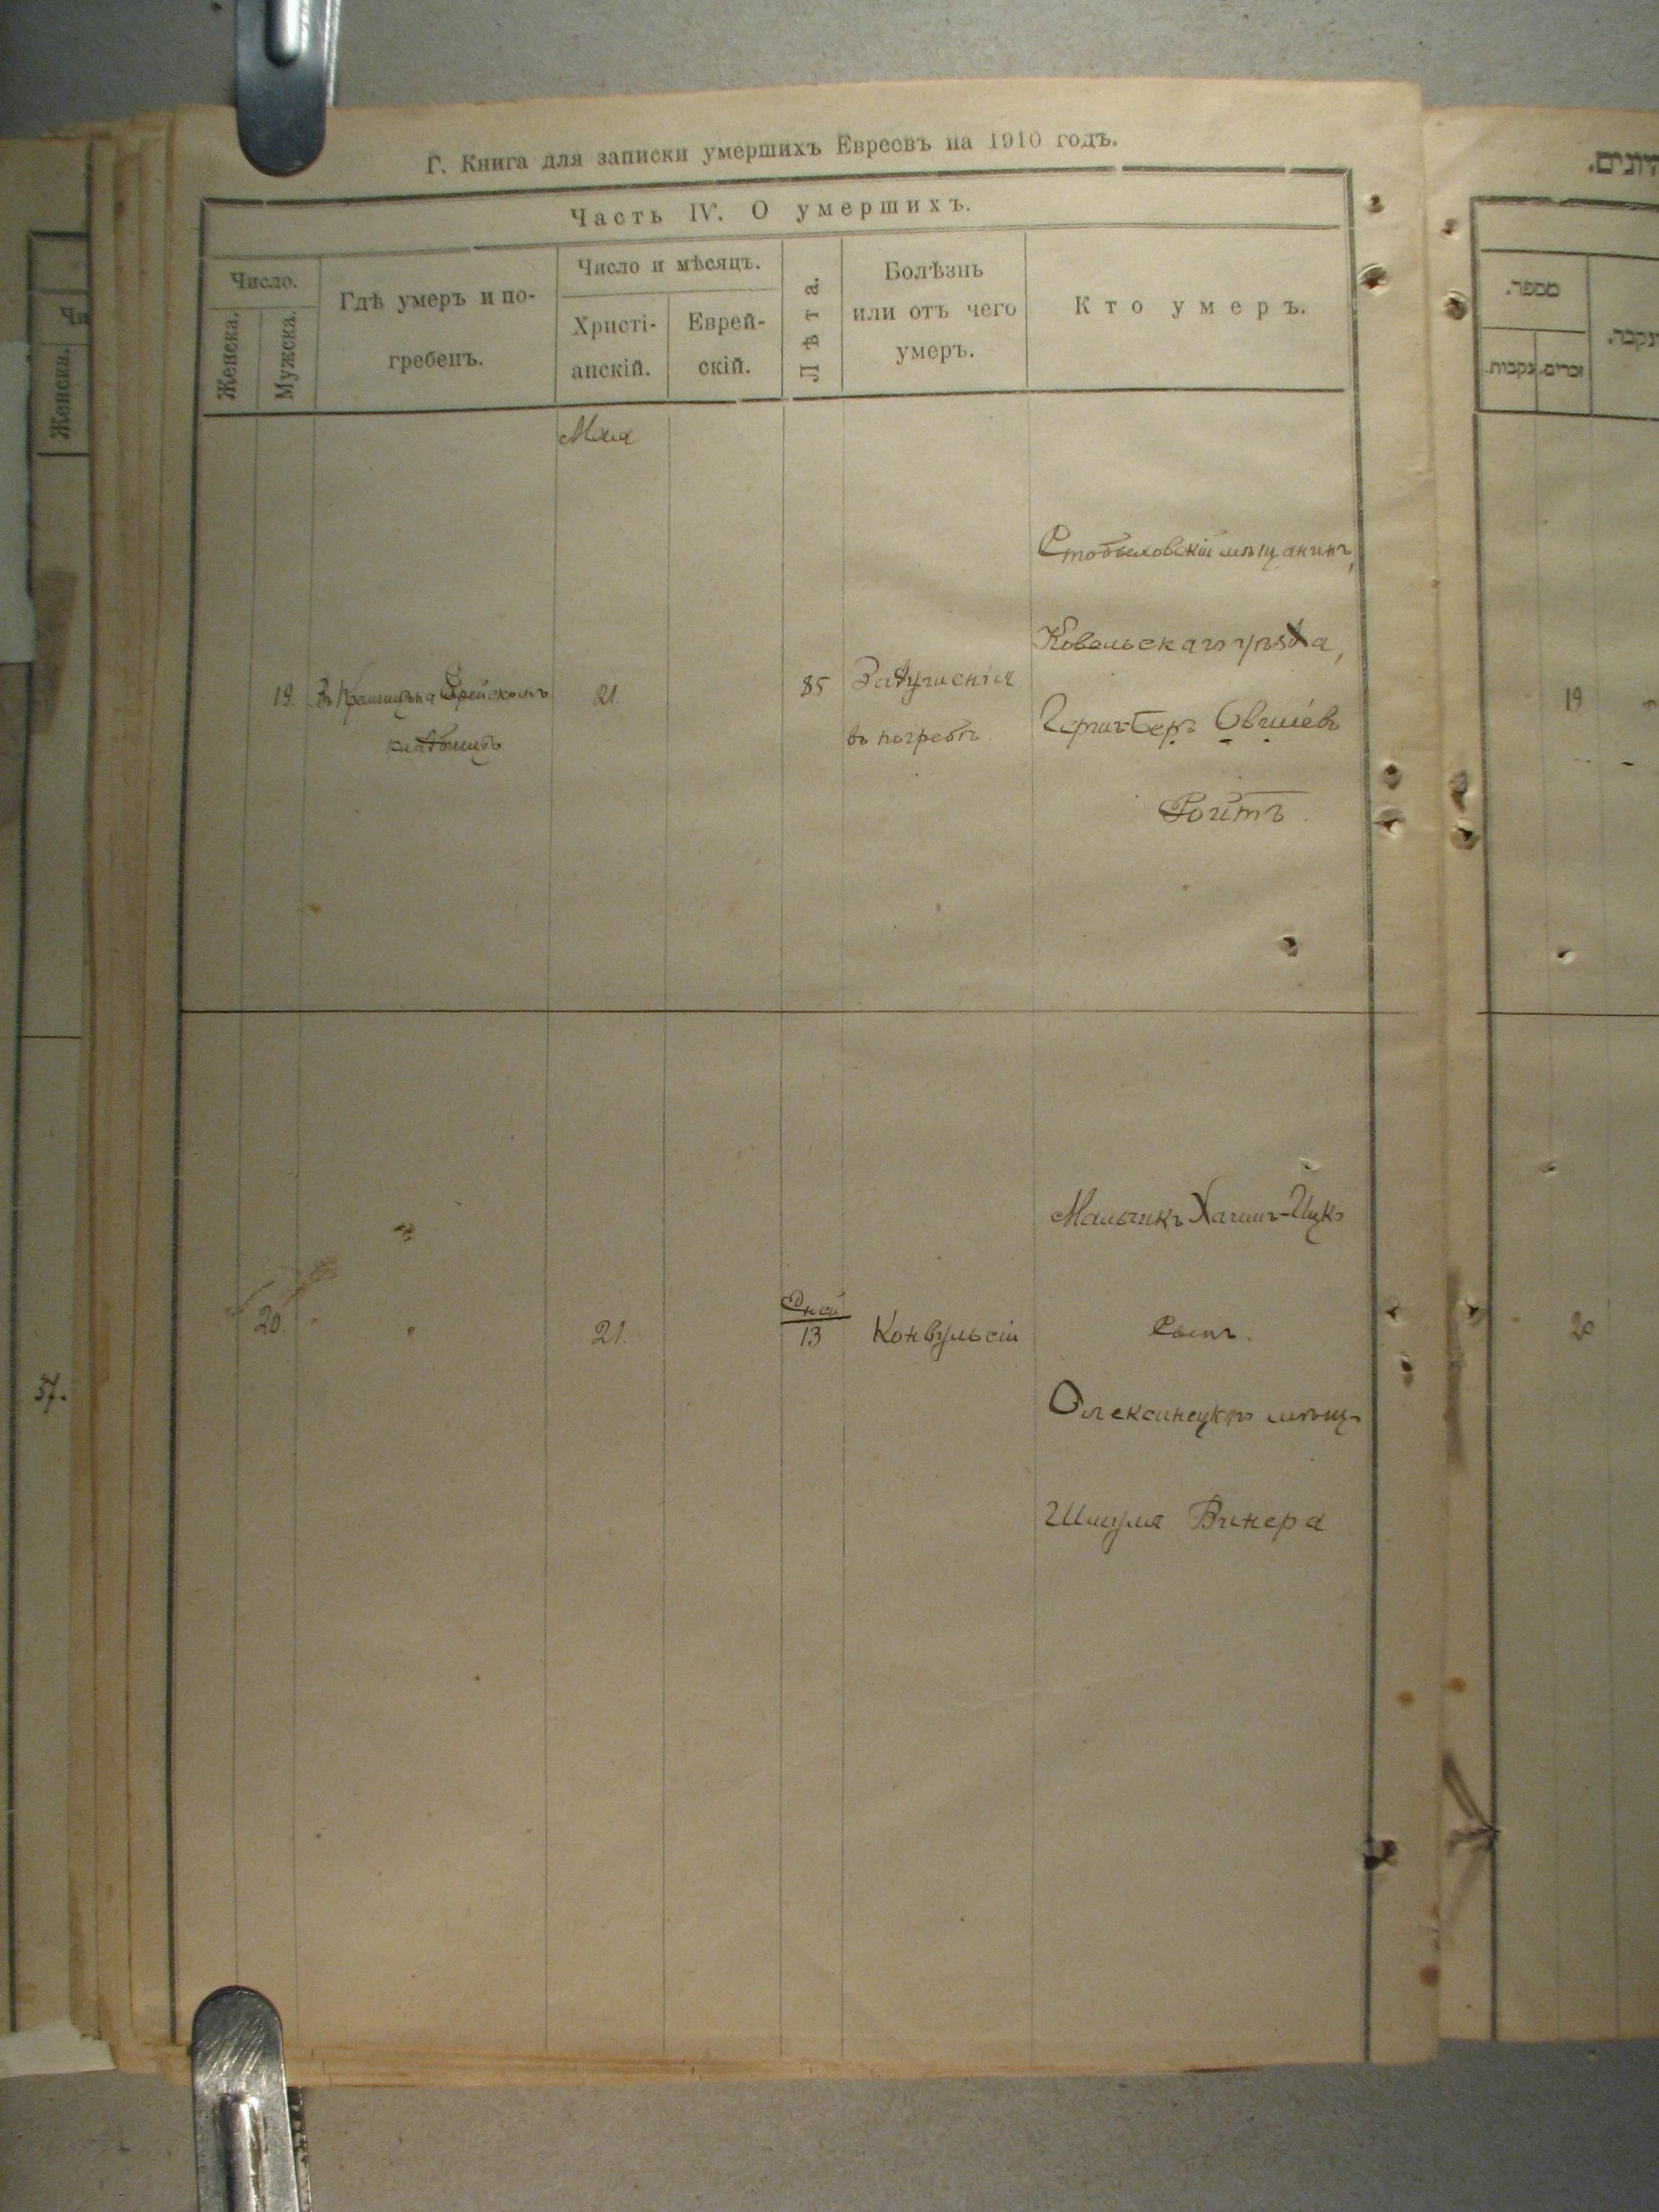 Г. Книга для записки умершихъ Евреевъ на 1910 годъ.
Часть IV. О умершихъ.
Число.
Женска.
Мужска.
Гдѣ умеръ и по-
гребенъ.
Число и мѣсяцъ.
Христі-
анскій.
Еврей-
скій.
Лѣта.
Болѣзнь
или отъ чего
умеръ.
Кто умеръ.
Мая
19.
Въ Кременцѣ на Еврейскомъ
кладбищѣ
21.
85
Задушенія
въ погребѣ
мѣщанинъ,
Ковельскаго уѣзда,
Беръ Овшіевъ
Ройтъ.
20.
"
21.
Дней
13
Конвульсіи
Мальчикъ Хаимъ-Ицко
сынъ.
Олексинецкаго мѣщ.
Шмуля Винера
Чи
Женска.
37.
מספר.
זכרים.
נקבות.
19
20